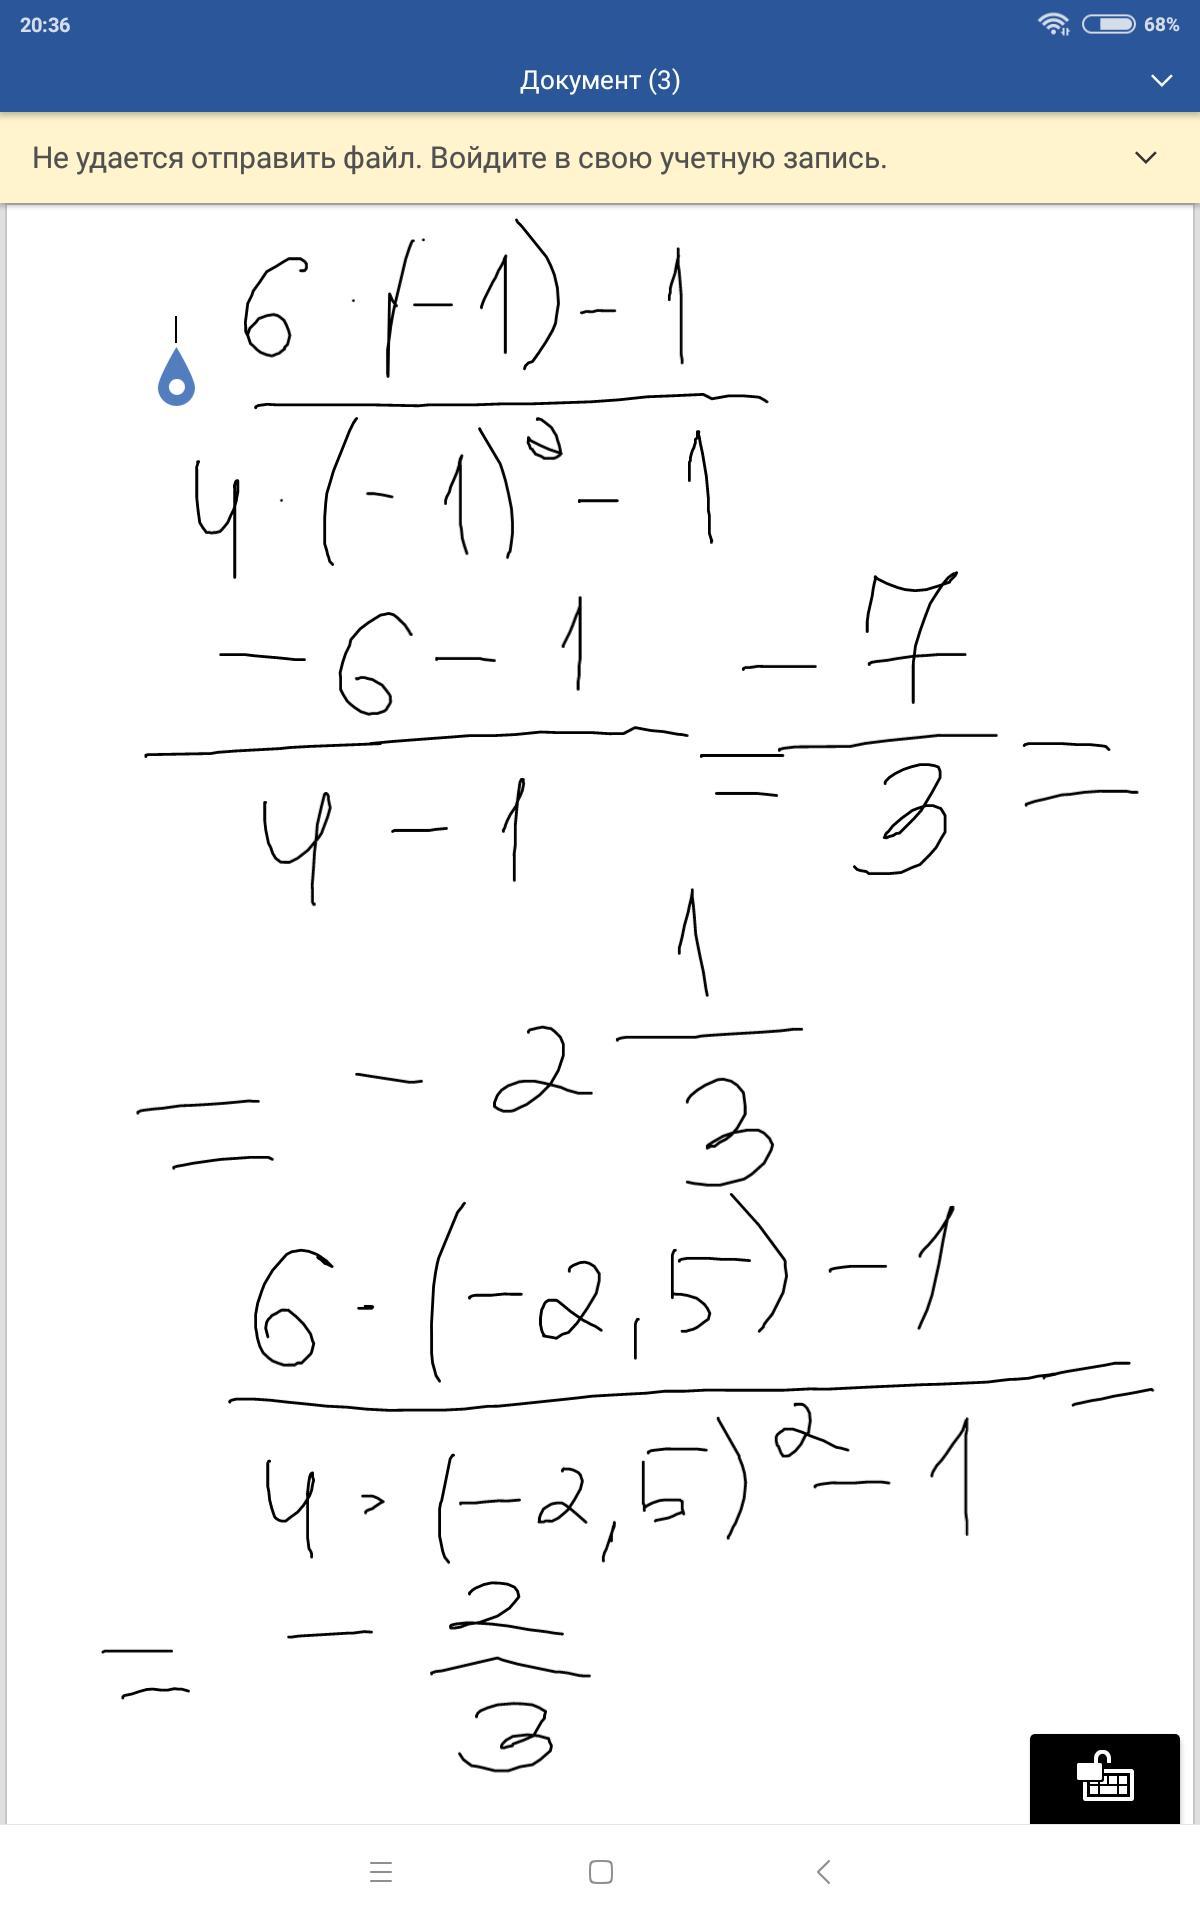 20:36 68%
Документ (3)
Не удается отправить файл. Войдите в свою учетную запись.
6 · (-1) - 1
4 · (-1)² - 1
-6 - 1 - 7
= =
4 - 1 3
= - 2 1/3
6 · (-2,5) - 1
=
4 · (-2,5)² - 1
= - 2/3